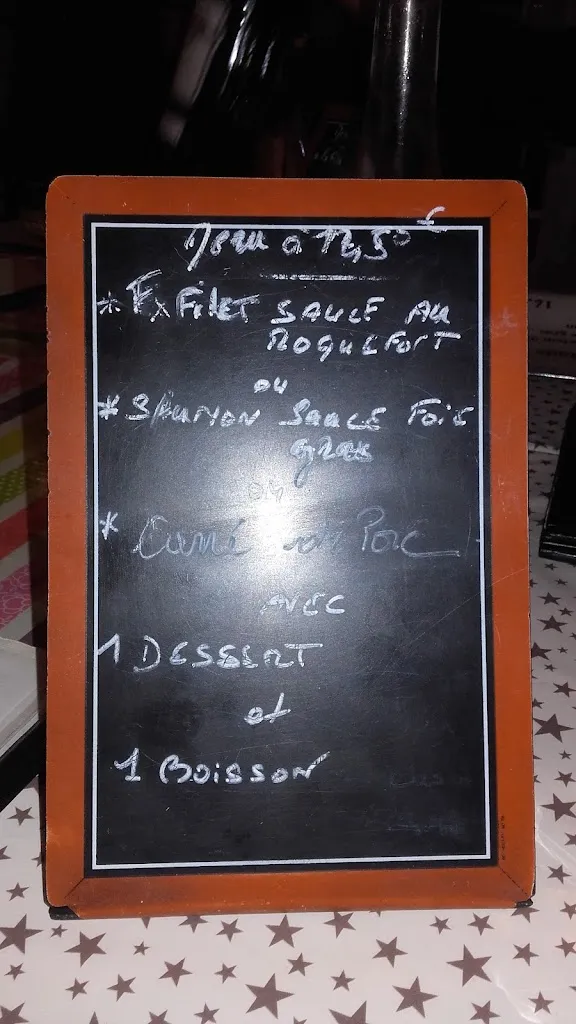 Menu à 12,50 €
* Fx Filet SAUCE AU
ROQUEFORT
ou
* SAUMON SAUCE FOiE
gras
ou
* Carré de Porc
AVEC
1 DESSERT
et
1 BOISSON